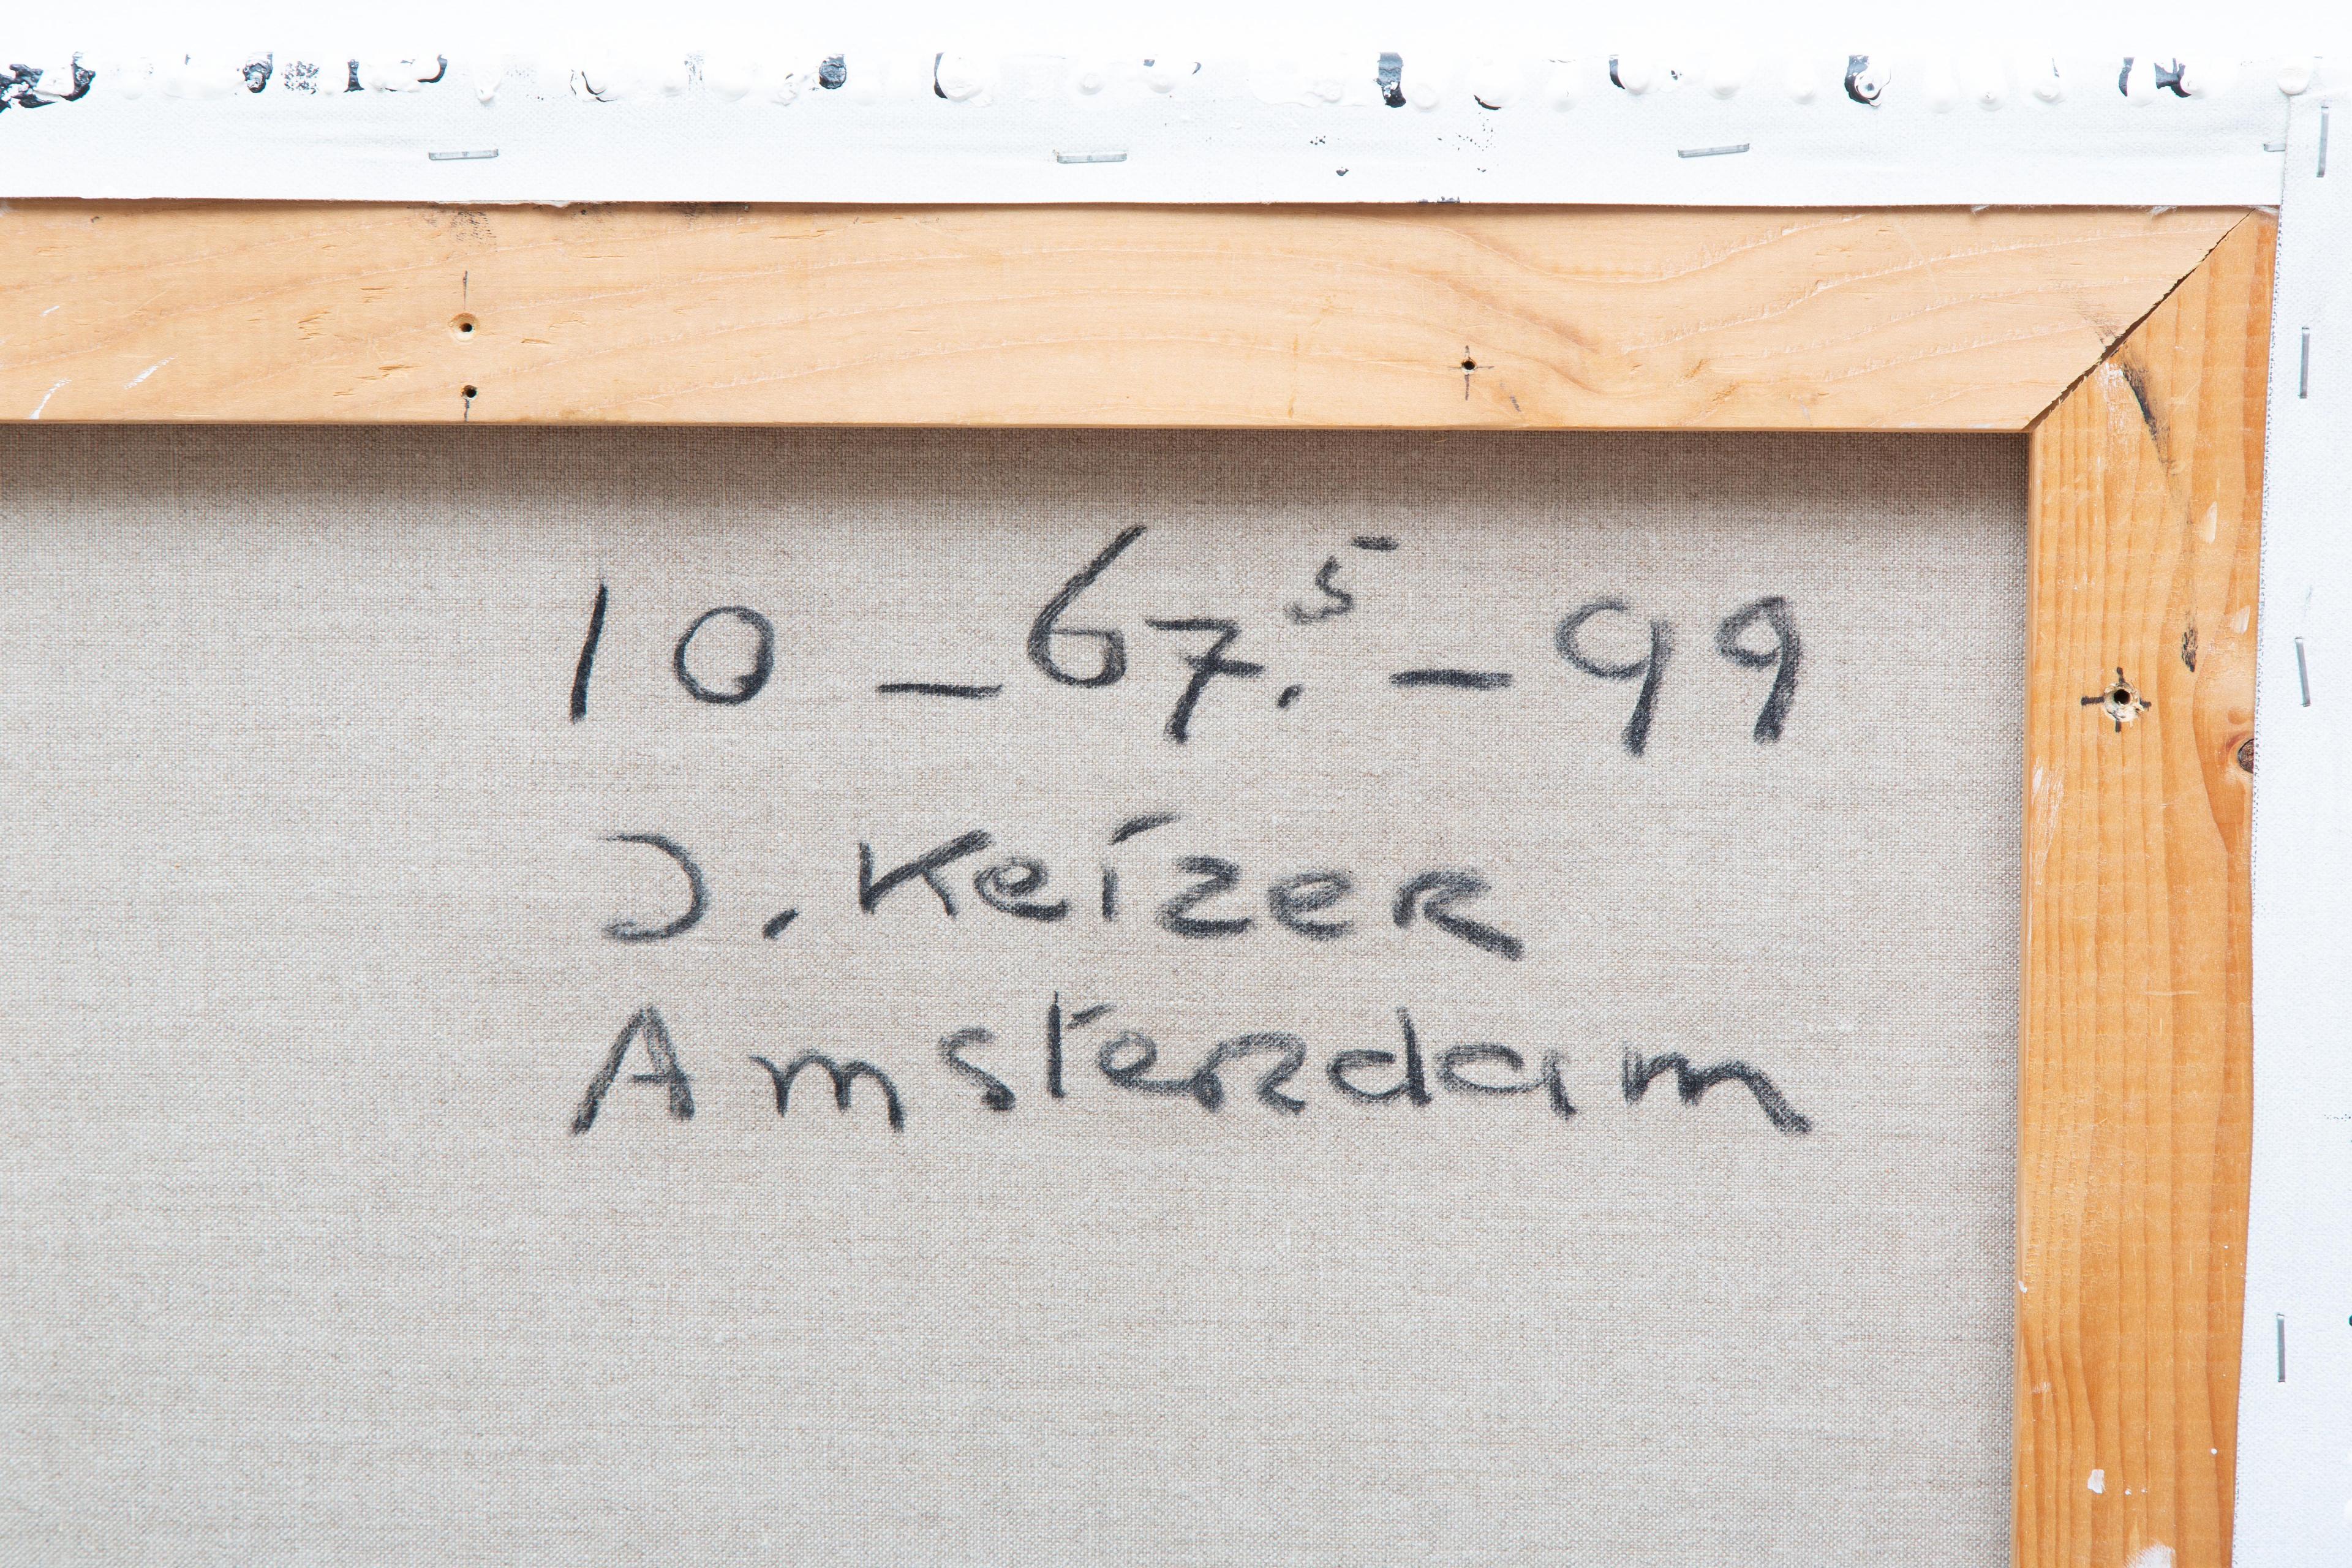 10 - 67.⁵ - 99
J. Keizer
Amsterdam